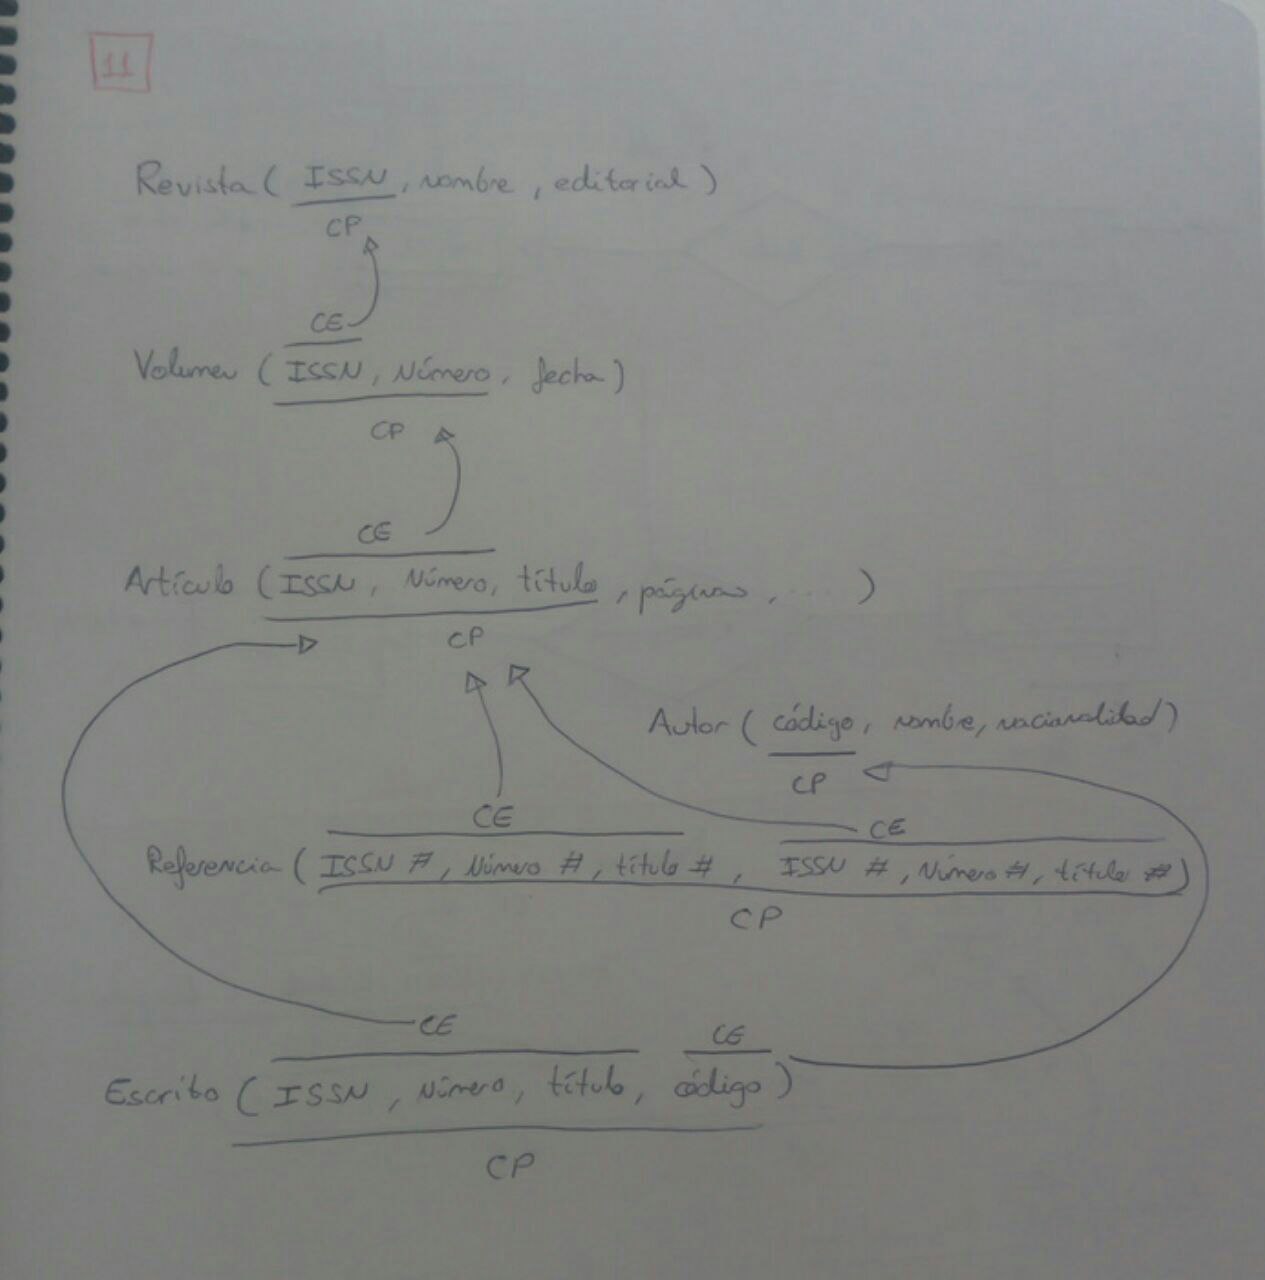 11
Revista ( ISSN , nombre , editorial )
CP
CE
Volumen ( ISSN , Número , fecha )
CP
CE
Artículo ( ISSN , Número, título , páginas , .... )
CP
Autor ( código, nombre, nacionalidad )
CP
CE CE
Referencia ( ISSN # , Número # , título # , ISSN # , Número # , título # )
CP
CE CE
Escrito ( ISSN , Número , título , código )
CP